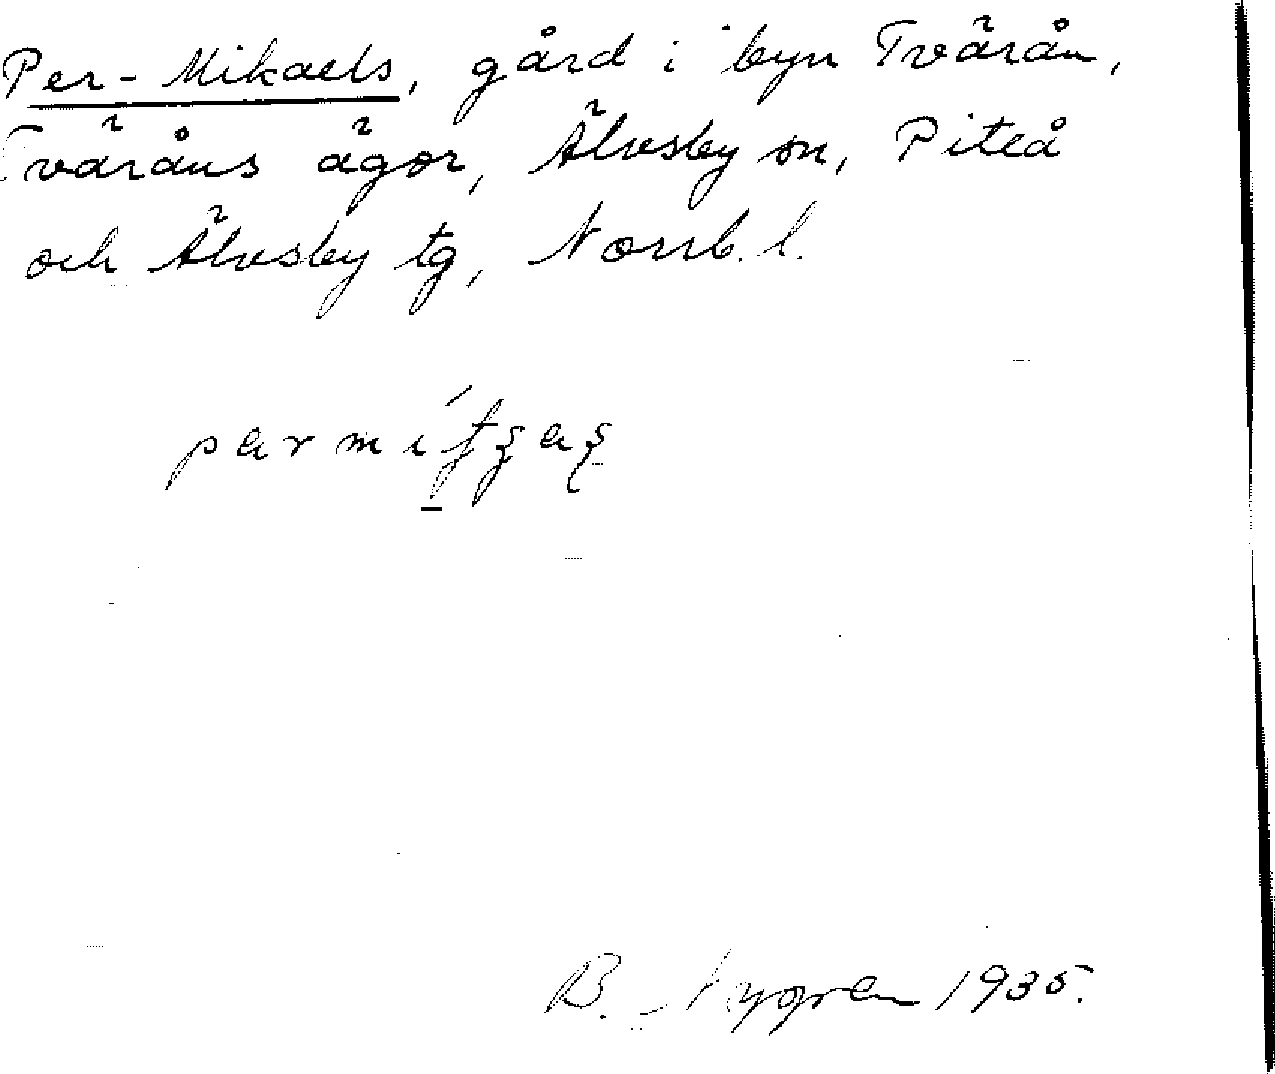 Per-Mikaels, gård i byn Tvärån,
Tväråns ägor, Älvsby sn, Piteå
och Älvsby tg, Norrb. l.
B. Nygren 1935.